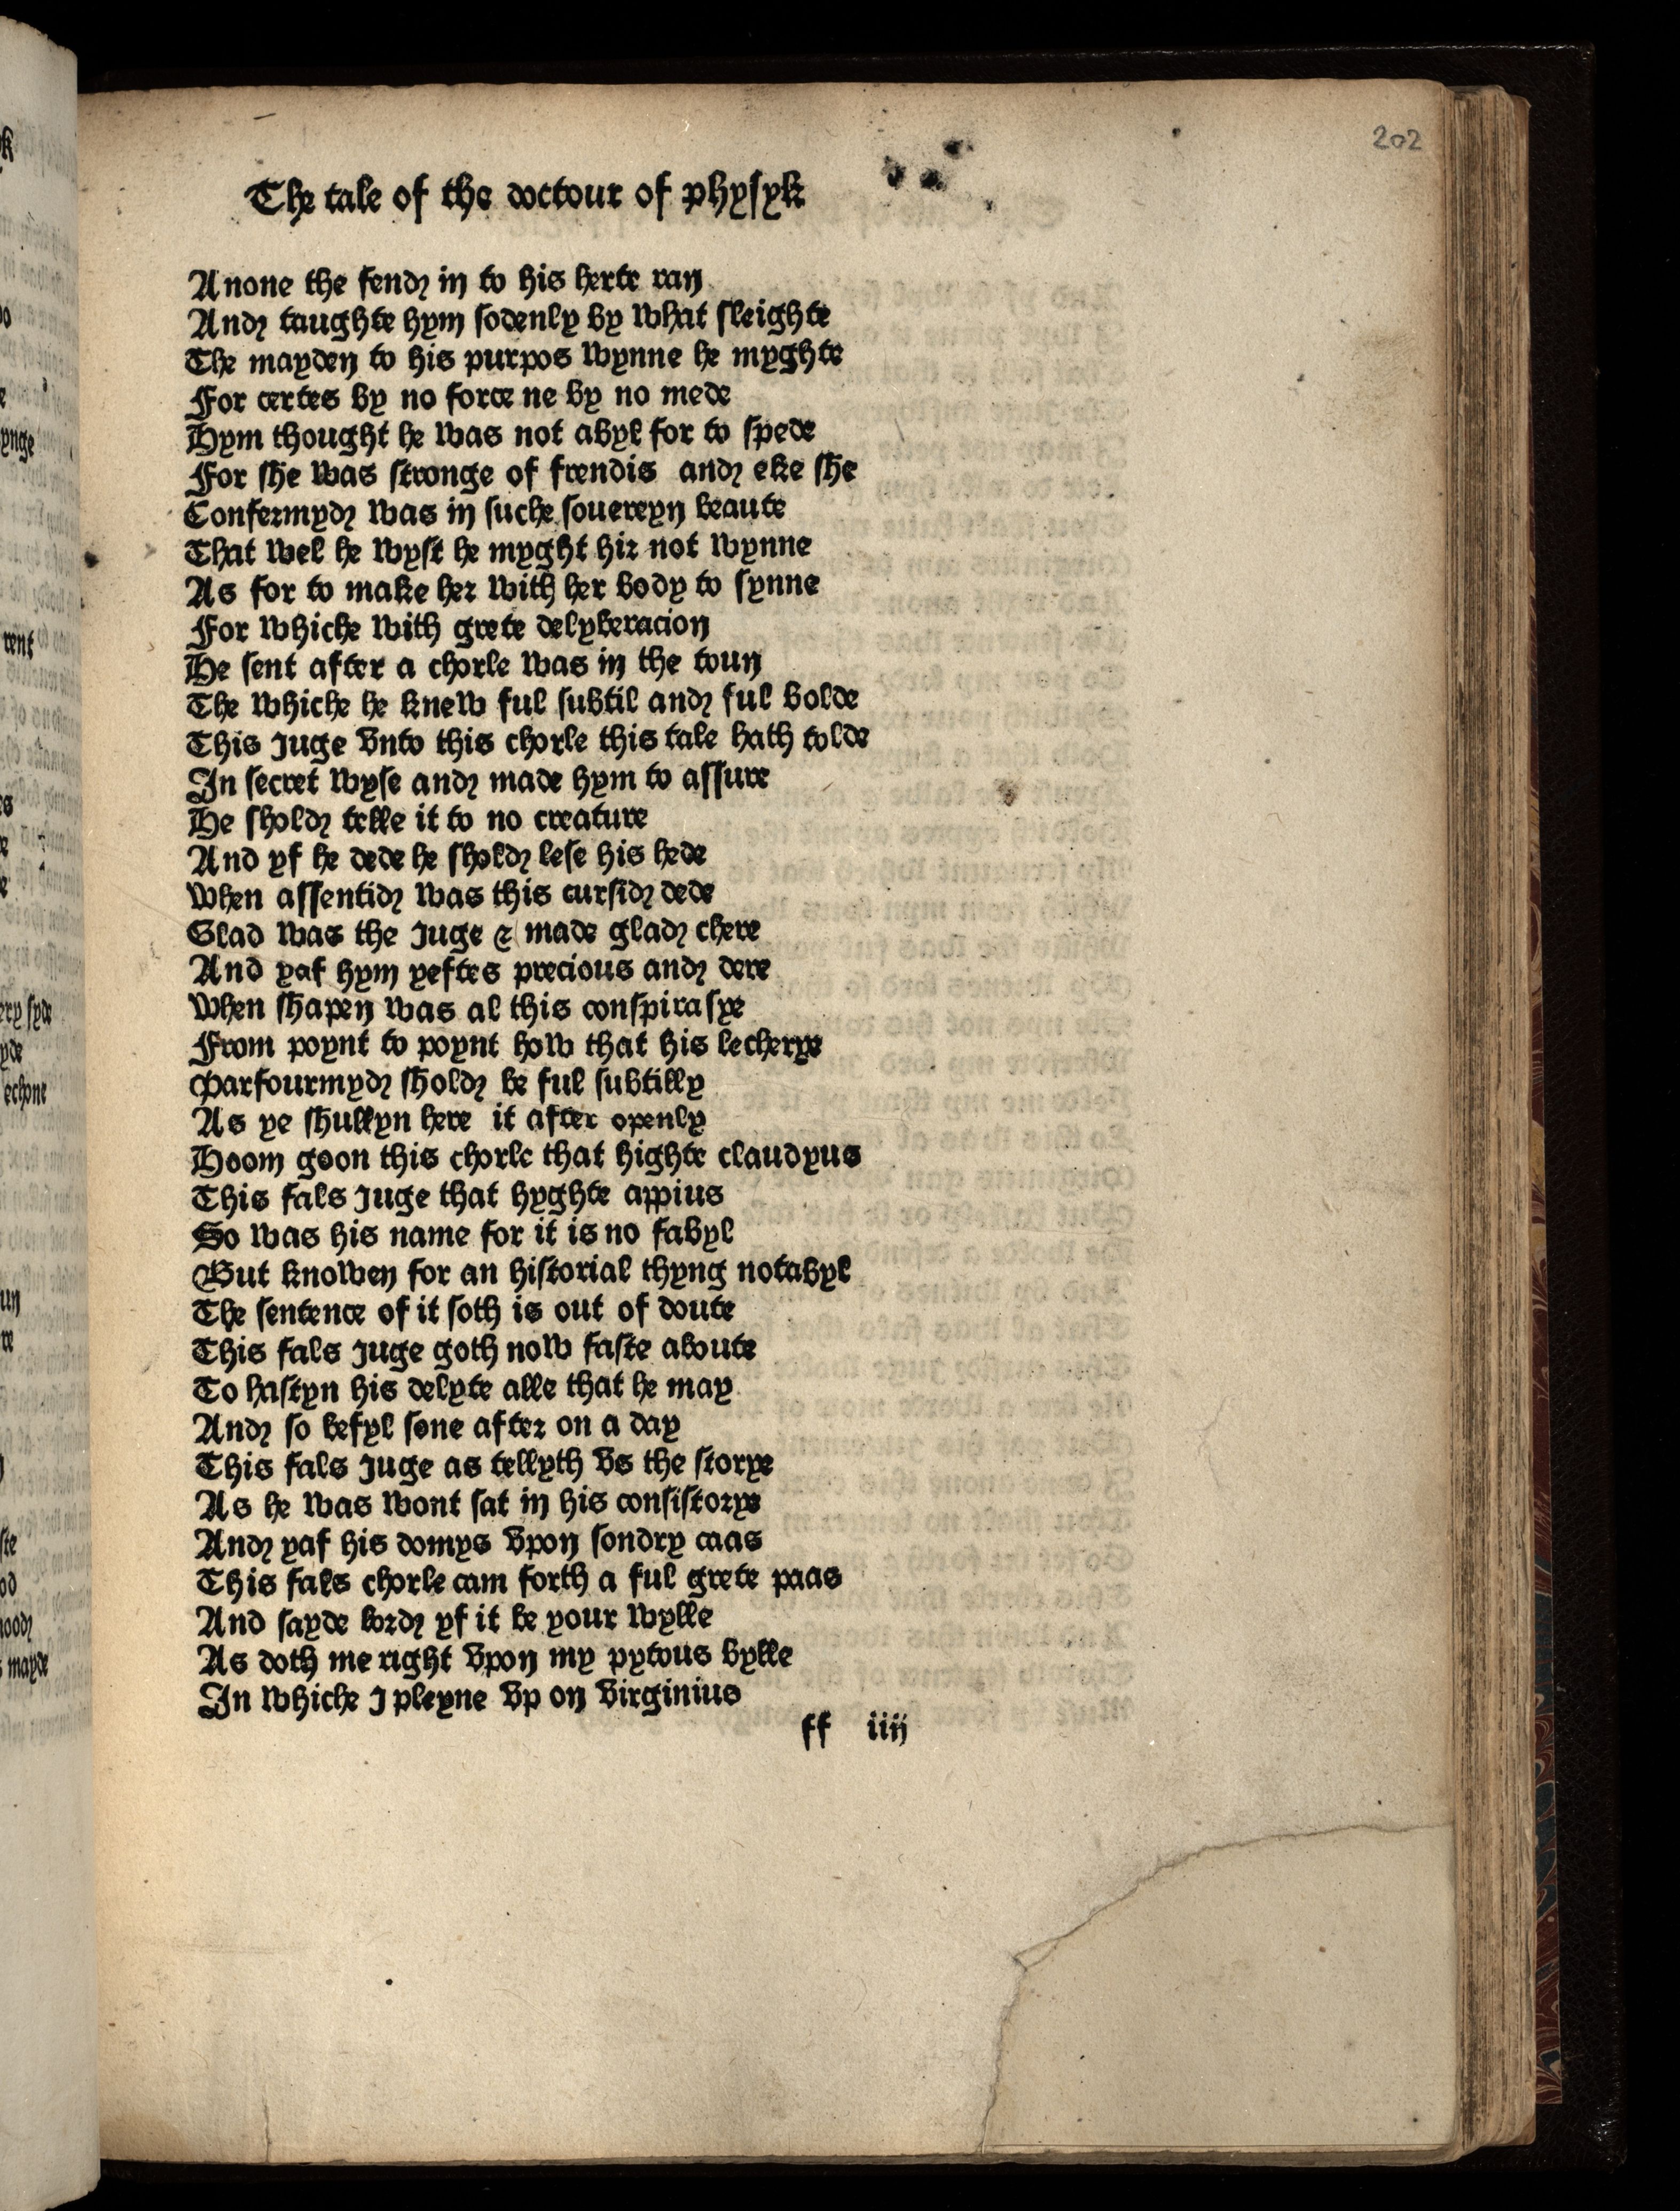 202
The tale of the doctour of phyſyk
Anone the fend in to his herte ran
And taughte hym ſodenly by what ſleighte
The mayden to his purpos wynne he myghte
For certes by no force ne by no mede
Hym thought he was not abyl for to ſpede
For ſhe was ſtronge of frendis and eke ſhe
Confermyd was in ſuche ſouereyn beaute
That wel he wyſt he myght hir not wynne
As for to make her with her body to ſynne
For whiche with grete delyberacion
He ſent after a chorle was in the toun
The whiche he knew ful ſubtil and ful bolde
This Juge vnto this chorle this tale hath tolde
In secret wyſe and made hym to aſſure
He ſhold telle it to no creature
And yf he dede he ſhold leſe his hede
When aſſentid was this curſid dede
Glad was the Juge & made glad chere
And yaf hym yeftes precious and dere
When ſhapen was al this conſpiraſye
From poynt to poynt how that his lecherye
Parfourmyd ſhold be ful ſubtilly
As ye ſhullyn here it after openly
Hoom goon this chorle that highte claudyus
This fals Juge that hyghte appius
So was his name for it is no fabyl
But knowen for an hiſtorial thyng notabyl
The ſentence of it ſoth is out of doute
This fals Juge goth now faſte aboute
To haſtyn his delyte alle that he may
And so befyl ſone after on a day
This fals Juge as tellyth vs the ſtorye
As he was wont ſat in his conſiſtorye
And yaf his domys vpon ſondry caas
This fals chorle cam forth a ful grete paas
And ſayde lord yf it be your wylle
As doth me right vpon my pytous bylle
In whiche J pleyne vp on virginius
ff iiij